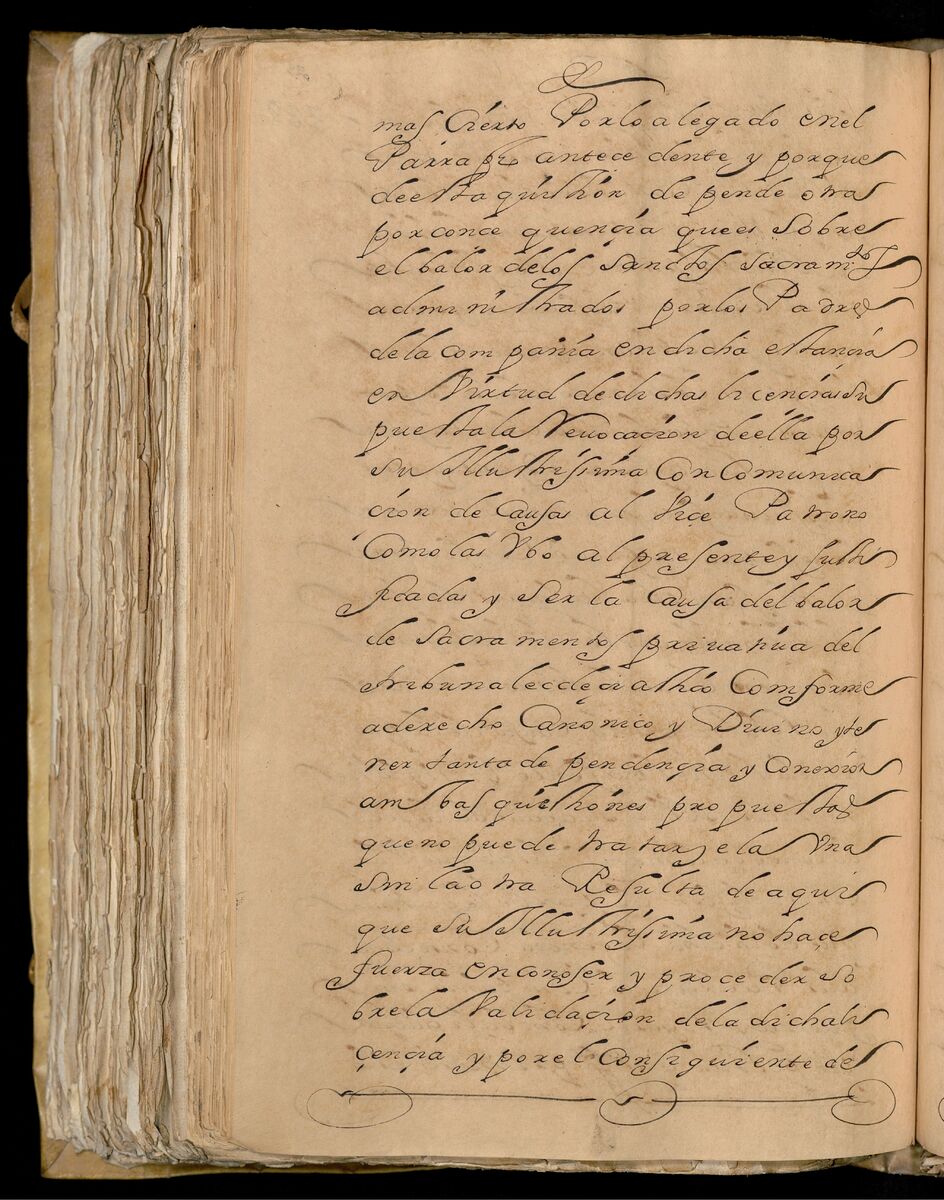 mas Cierto Por lo alegado en el
Parrapho antecedente y porque
de esta quistion depende otra
por concequençia que es sobre
el balor de los Sanctos Sacramtos
administrados por los Padres
de la compañia en dicha estancia
en Virtud de dichas licencias su
puesta la Reuocacion de ella por
su Illustrissima Con Comunica
cion de Causas al Vice Patrono
Como las Vbo al presente y Justi
ficadas y ser la Causa del balor
de Sacramentos priuatiua del
tribunal ecclesiastico Comforme
a derecho Canonico y Diuino y te
ner tanta dependençia y Conexion
ambas quistiones propuestas
que no puede tratarse la Vna
sin la otra Resulta de aqui
que su Illustrissima no haçe
fuerza en conoser y proceder so
bre la Validaçion de la dicha li
çençia y por el Consiguiente de